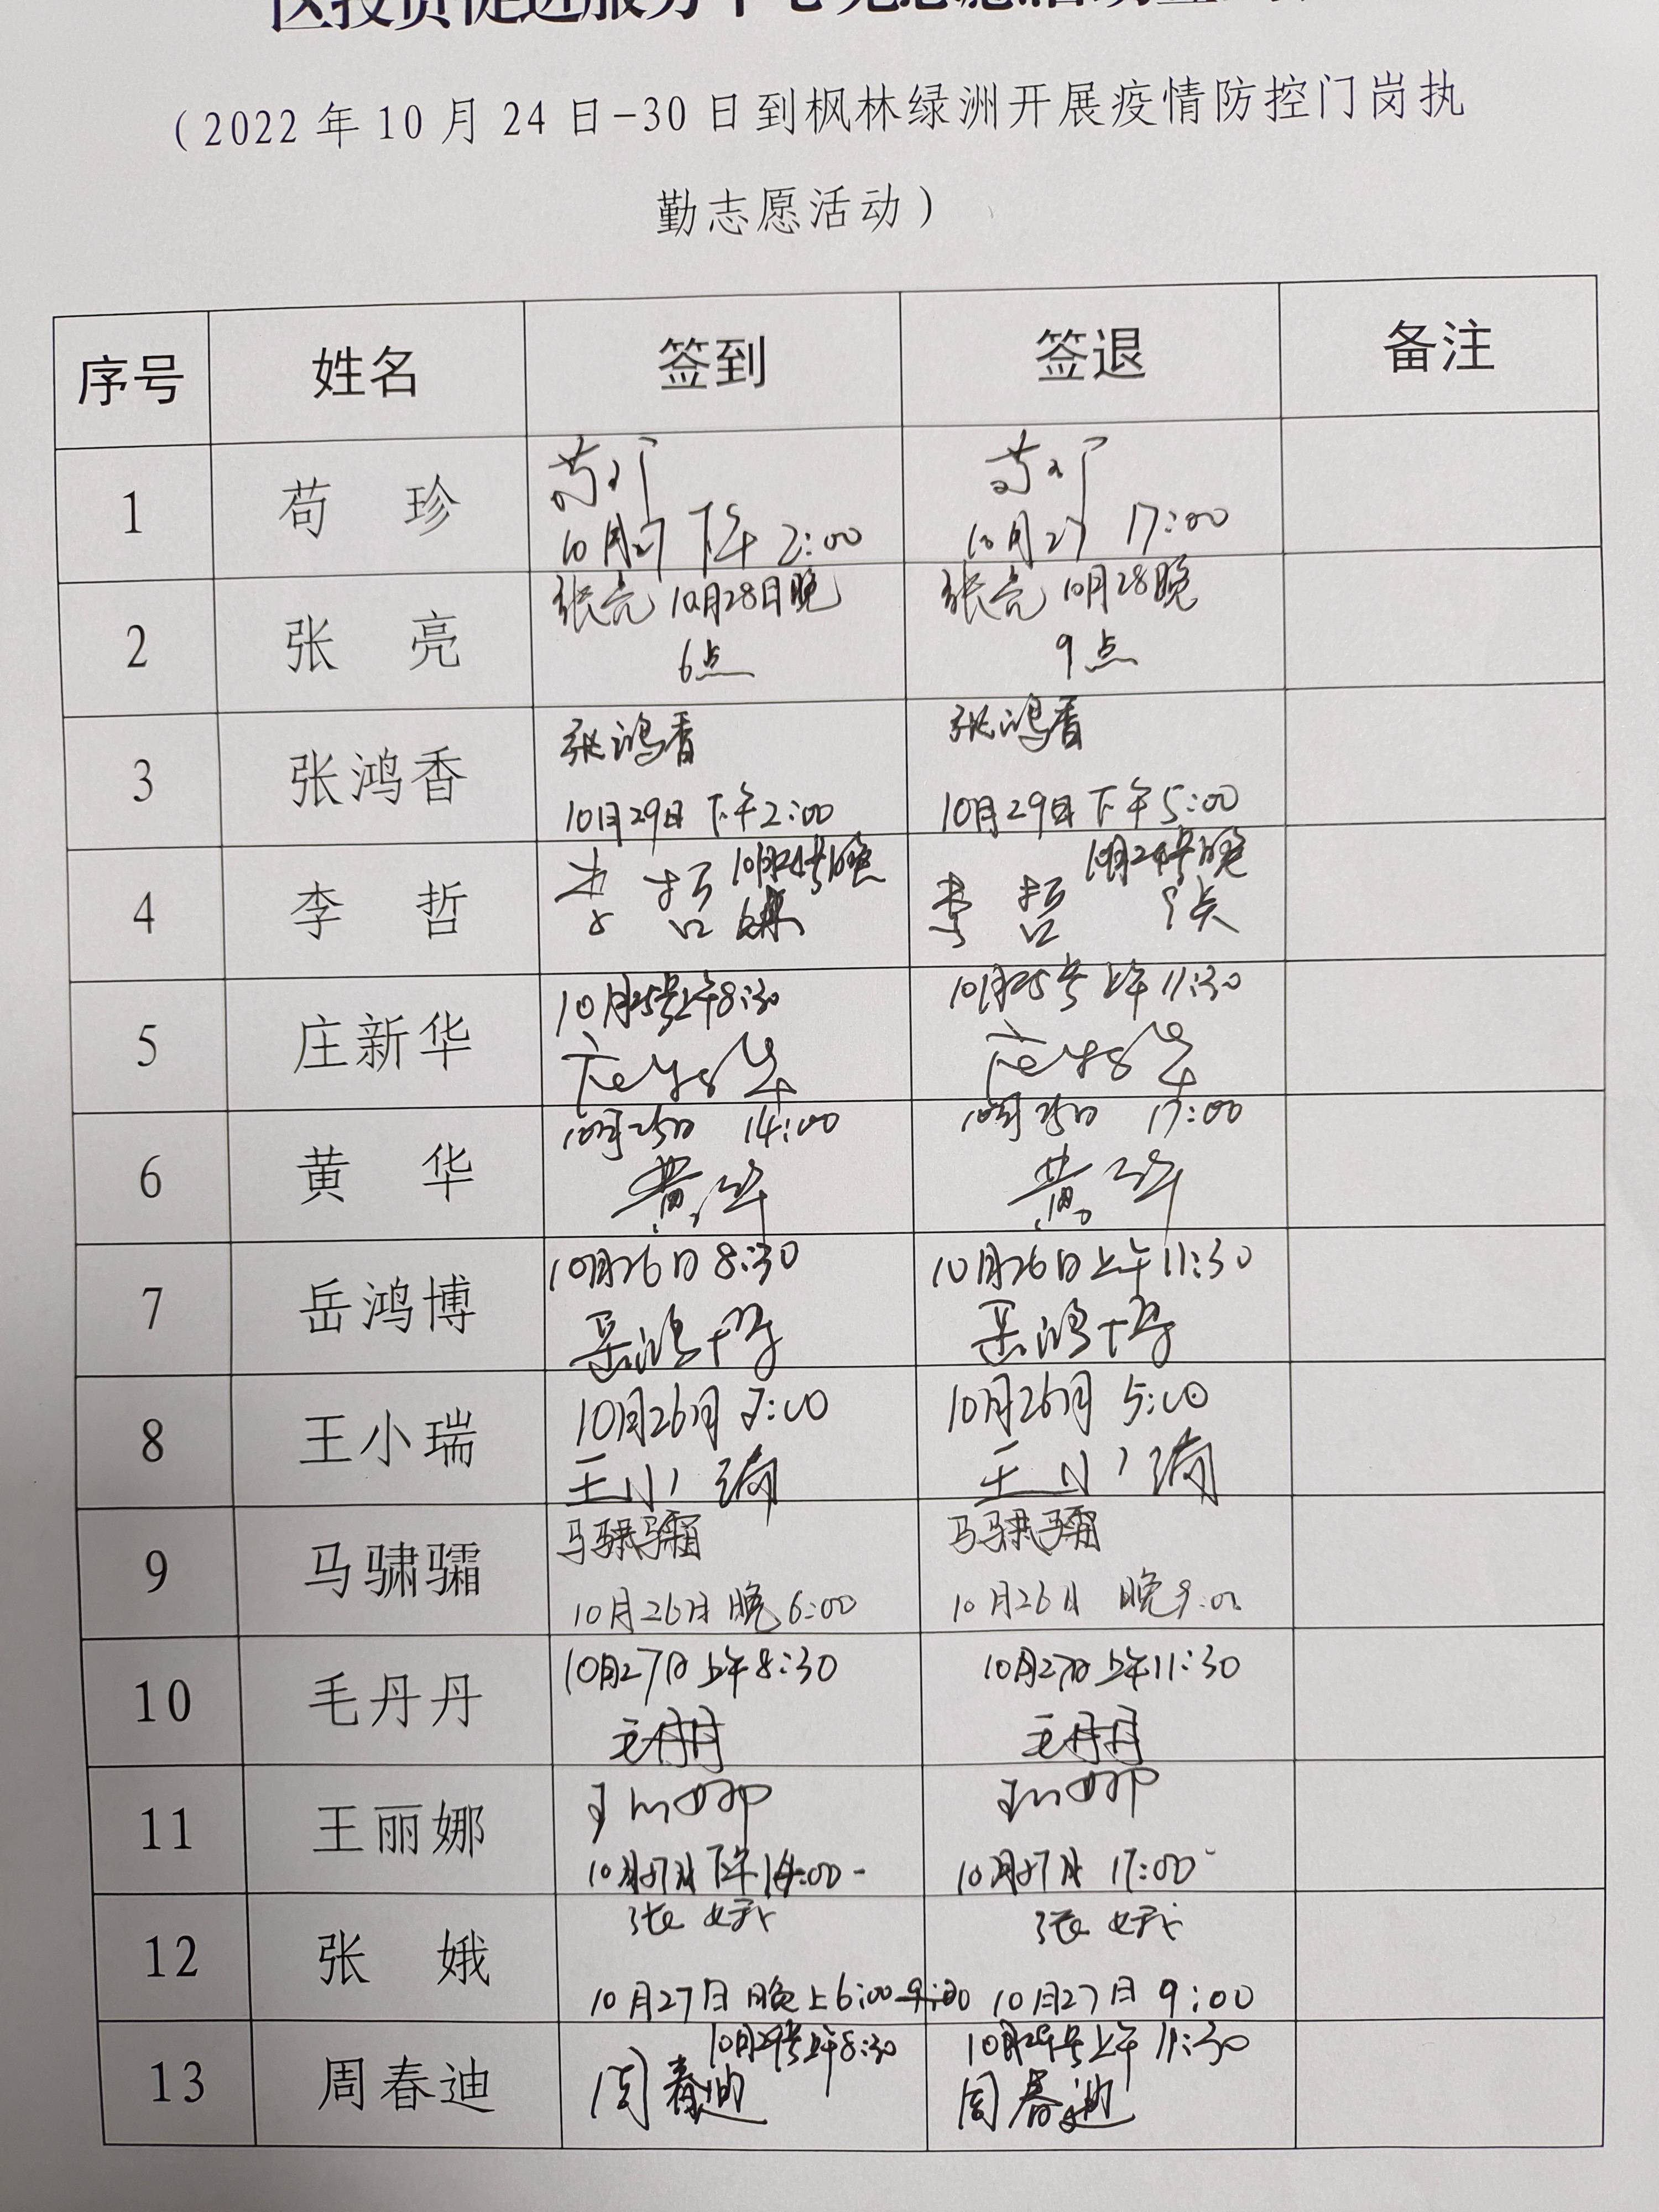 区投资促进服务中心
（2022年10月24日-30日到枫林绿洲开展疫情防控门岗执
勤志愿活动）
序号 姓名 签到 签退 备注
1 苟 珍 苟珍 10月27 下午 2:00 苟珍 10月27 17:00
2 张 亮 张亮 10月28日晚 6点 张亮 10月28晚 9点
3 张鸿香 张鸿香 10月29日 下午2:00 张鸿香 10月29日 下午5:00
4 李 哲 李哲 10月24号晚 李哲 10月24号晚 9点
5 庄新华 10月25号上午8:30 庄新华 10月25号上午11:30 庄新华
6 黄 华 10月25日 14:00 黄华 10月25日 17:00 黄华
7 岳鸿博 10月26日8:30 岳鸿博 10月26日上午11:30 岳鸿博
8 王小瑞 10月26日 2:00 王小瑞 10月26日 5:00 王小瑞
9 马骕骦 马骕骦 10月26日 晚6:00 马骕骦 10月26日 晚9:00
10 毛丹丹 10月27日上午8:30 毛丹丹 10月27日上午11:30 毛丹丹
11 王丽娜 王丽娜 10月27日 下午14:00 王丽娜 10月27日 17:00
12 张 娥 张娥 10月27日 晚上6:00 张娥 10月27日 9:00
13 周春迪 10月29号上午8:30 周春迪 10月29号上午11:30 周春迪